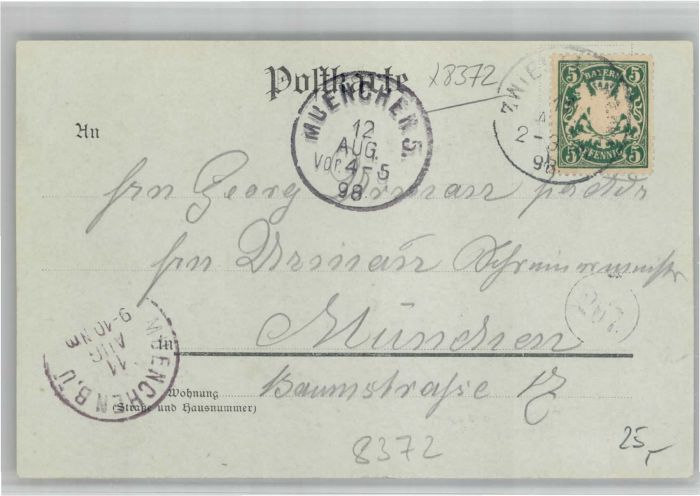 Postkarte
x8372
MUENCHEN 5.
12
AUG.
Vor. 4-5
98
ZWIE
2-3
98
5 BAYERN 5
5 PFENNIG 5
An
Hrn Georg
Hrn Urmann Schreinermeister
in München
MUENCHEN B.Ü
11
AUG
9-10 Nm
Wohnung
(Straße und Hausnummer)
Baumstraße 17
8372
25,-